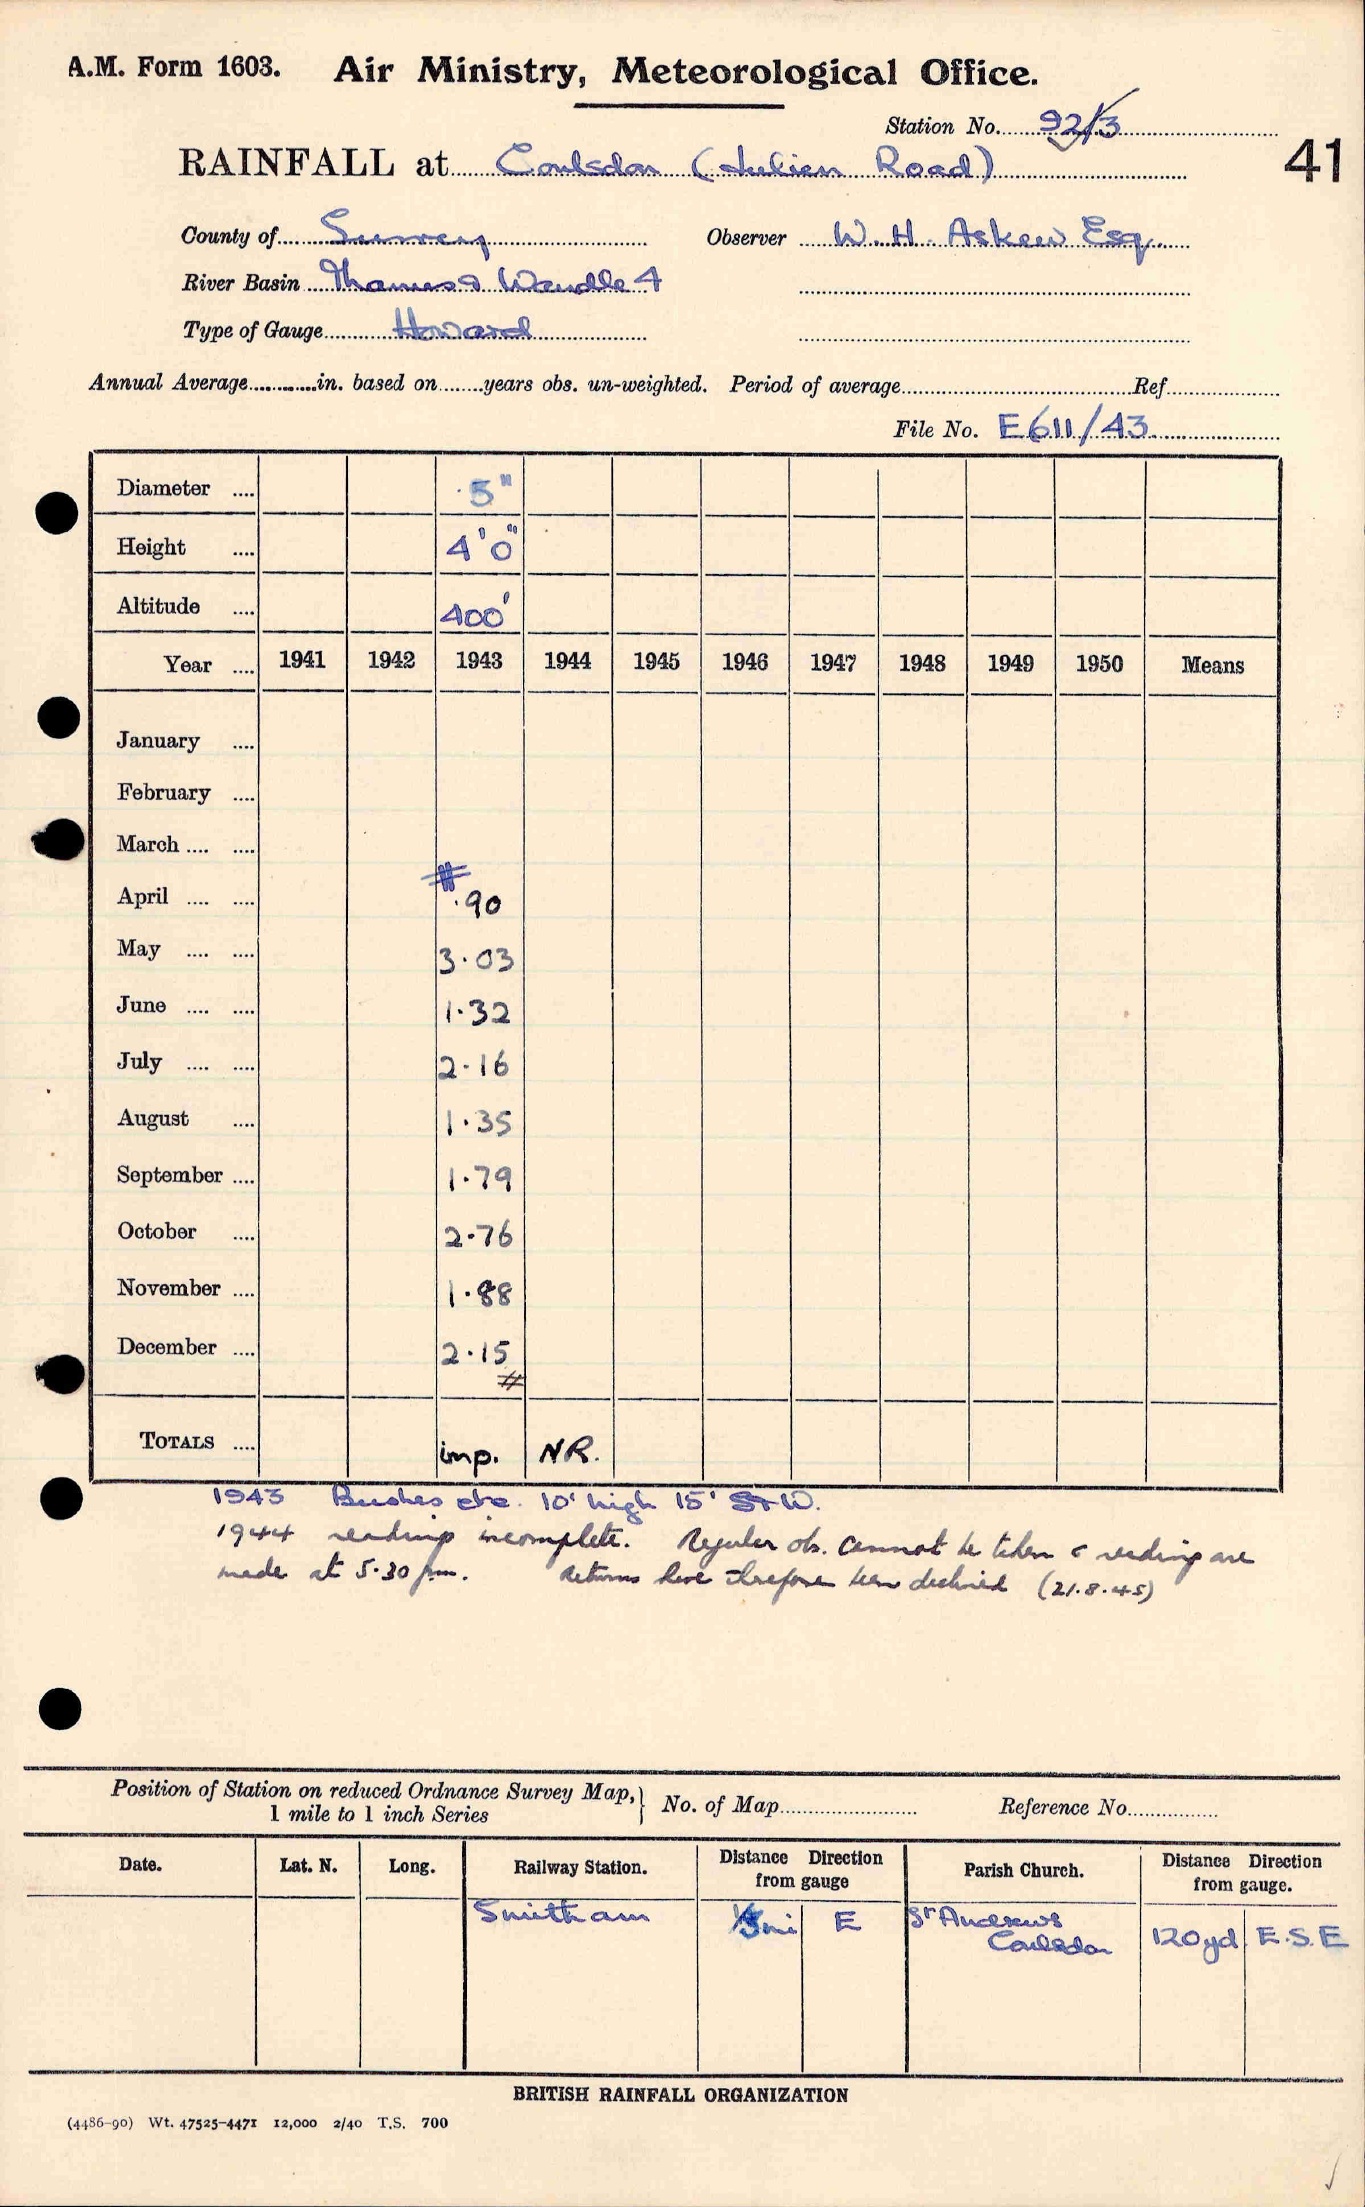 A.M. Form 1603. Air Ministry, Meteorological Office.
Station No. 92/3
41
RAINFALL at Coulsdon (Julien Road)
County of Surrey Observer W. H. Askew Esq.
River Basin Thames & Wandle 4
Type of Gauge Howard
Annual Average............in. based on.......years obs. un-weighted. Period of average............Ref............
File No. E611/43
Diameter .... 5"
Height .... 4'0"
Altitude .... 400'
Year .... 1941 1942 1943 1944 1945 1946 1947 1948 1949 1950 Means
January ....
February ....
March .... ....
#
April .... .... ·90
May .... .... 3·03
June .... .... 1·32
July .... .... 2·16
August .... 1·35
September .... 1·79
October .... 2·76
November .... 1·88
December .... 2·15
#
TOTALS .... imp. NR.
1943 Bushes etc. 10' high 15' S+W.
1944 readings incomplete. Regular obs. cannot be taken & readings are
made at 5·30 pm. Returns have therefore been declined (21.8.45)
Position of Station on reduced Ordnance Survey Map, } No. of Map............ Reference No............
1 mile to 1 inch Series
Date. Lat. N. Long. Railway Station. Distance Direction from gauge Parish Church. Distance Direction from gauge.
Smitham mi E St Andrews
Coulsdon 120yd E.S.E
BRITISH RAINFALL ORGANIZATION
(4486-90) Wt. 47525-4471 12,000 2/40 T.S. 700